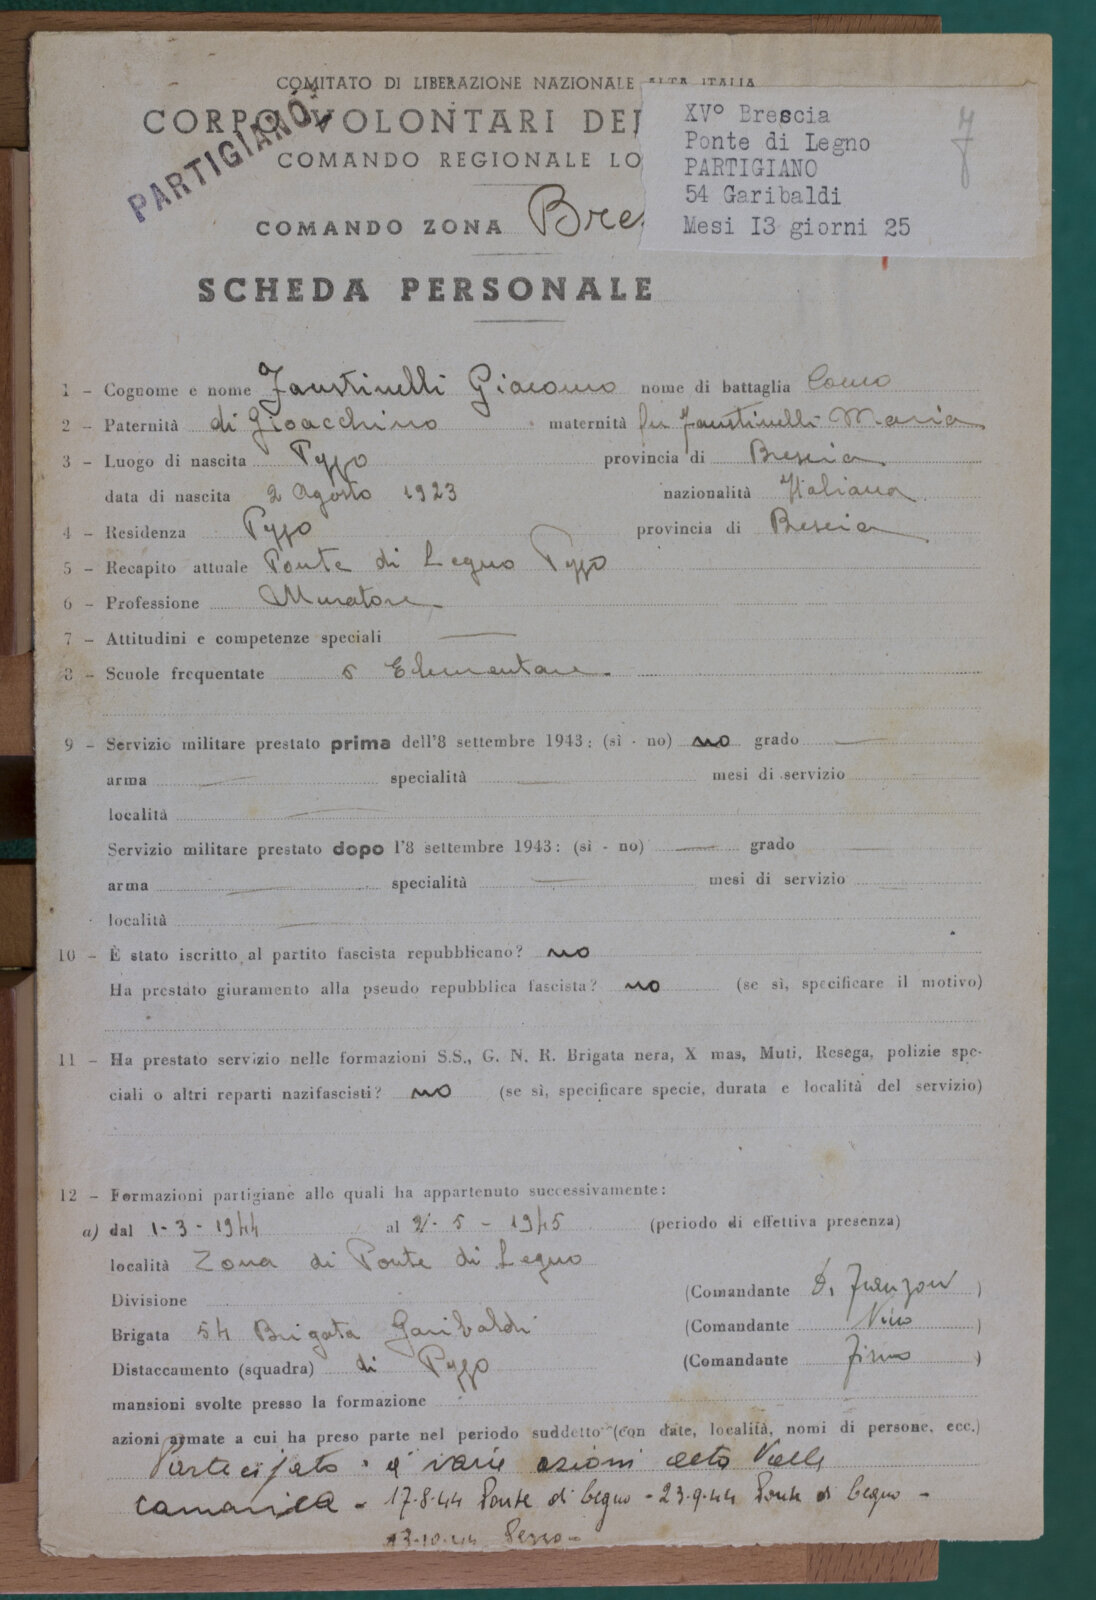 COMITATO DI LIBERAZIONE NAZIONALE ALTA ITALIA
CORPO VOLONTARI DEL
PARTIGIANO
COMANDO REGIONALE LO
XV° Brescia
Ponte di Legno
PARTIGIANO
54 Garibaldi
Mesi I3 giorni 25
7
COMANDO ZONA Bres
SCHEDA PERSONALE
1 - Cognome e nome Faustinelli Giacomo nome di battaglia
2 - Paternità di Gioacchino maternità fu Faustinelli Maria
3 - Luogo di nascita Pezzo provincia di Brescia
data di nascita 2 Agosto 1923 nazionalità Italiana
4 - Residenza Pezzo provincia di Brescia
5 - Recapito attuale Ponte di Legno Pezzo
6 - Professione Muratore
7 - Attitudini e competenze speciali
8 - Scuole frequentate 5 Elementare
9 - Servizio militare prestato prima dell'8 settembre 1943: (sì - no) no grado
arma specialità mesi di servizio
località
Servizio militare prestato dopo l'8 settembre 1943: (sì - no) grado
arma specialità mesi di servizio
località
10 - È stato iscritto al partito fascista repubblicano? no
Ha prestato giuramento alla pseudo repubblica fascista? no (se sì, specificare il motivo)
11 - Ha prestato servizio nelle formazioni S.S., G. N. R. Brigata nera, X mas, Muti, Resega, polizie spe-
ciali o altri reparti nazifascisti? no (se sì, specificare specie, durata e località del servizio)
12 - Formazioni partigiane alle quali ha appartenuto successivamente:
a) dal 1-3-1944 al 2-5-1945 (periodo di effettiva presenza)
località Zona di Ponte di Legno
Divisione (Comandante D. Franzoni)
Brigata 54 Brigata Garibaldi (Comandante Nino)
Distaccamento (squadra) di Pezzo (Comandante Firmo)
mansioni svolte presso la formazione
azioni armate a cui ha preso parte nel periodo suddetto (con date, località, nomi di persone, ecc.)
Partecipato a varie azioni della Valle
Camonica - 17.8.44 Ponte di Legno - 23.9.44 Ponte di Legno -
13.10.44 Pezzo -